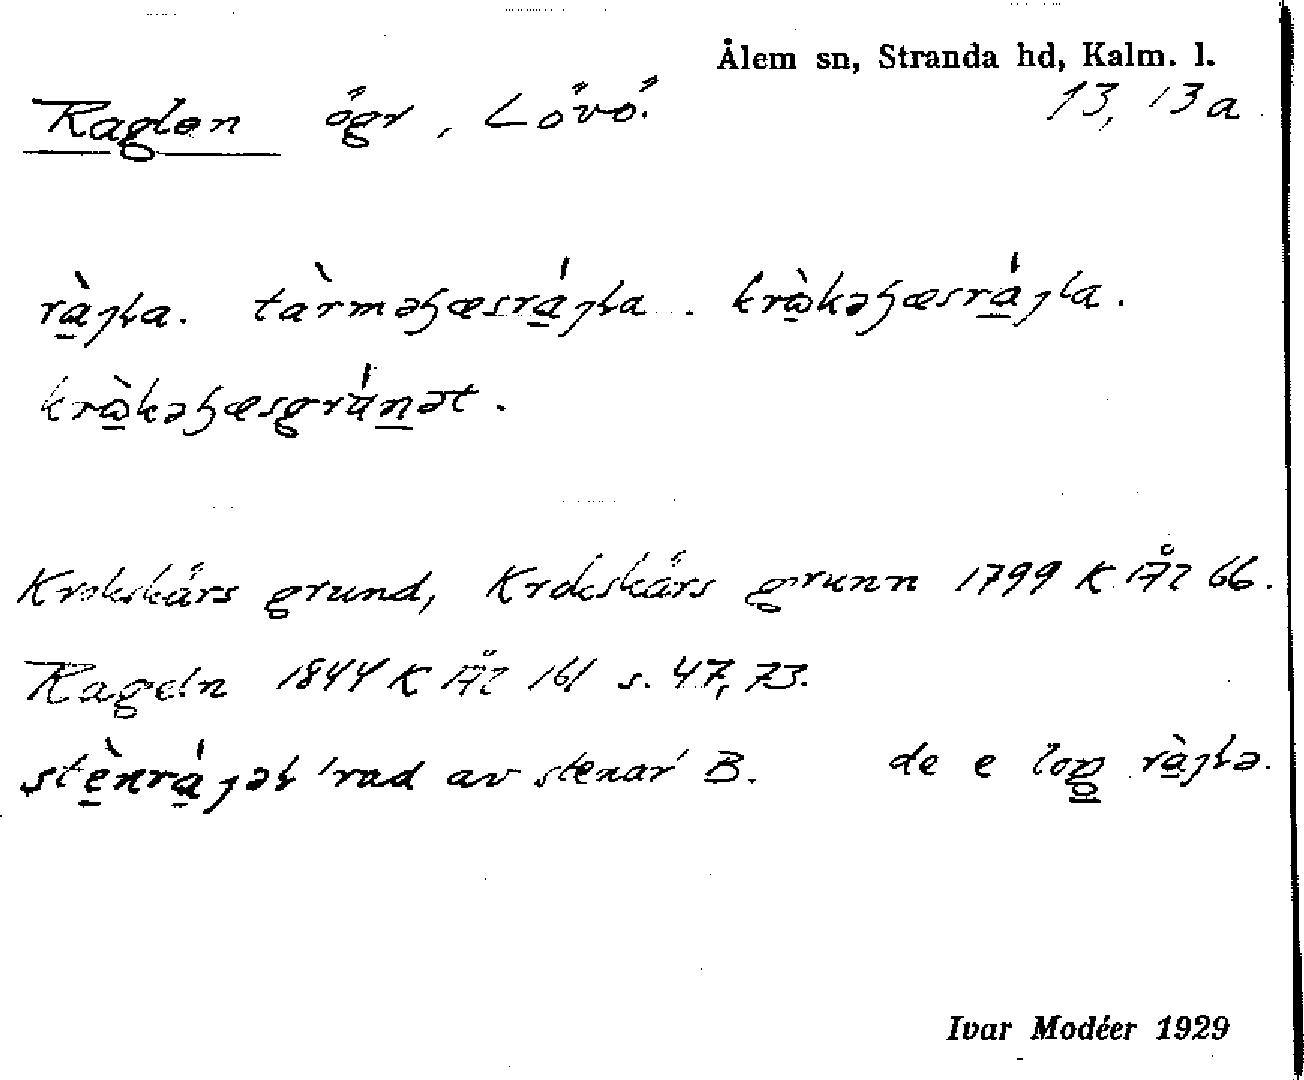 Ålem sn, Stranda hd, Kalm. l.
Raglen ögr, Lövö. 13, 13a
ràjla. tàrməhæsrájla. kròkəhæsrájla.
kròkəhæsgrúnət.
Krokskärs grund, Krokskärs grunn 1799 K ÄÅ2 66.
Rageln 1844 K ÄÅ2 161 s. 47, 73.
stènrájəl 'rad av stenar' B. de e loŋ ràjlə.
Ivar Modéer 1929